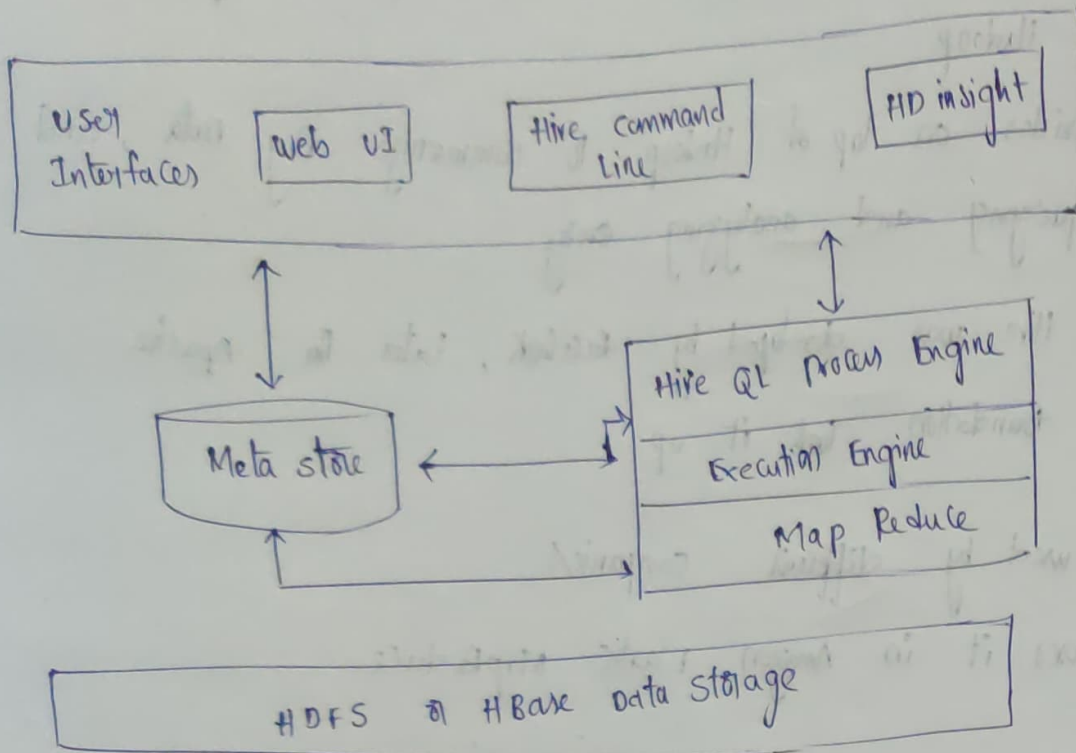 User
Interfaces
Web UI
Hive Command
Line
HD insight
Meta store
Hive QL Process Engine
Execution Engine
Map Reduce
HDFS or HBase Data Storage